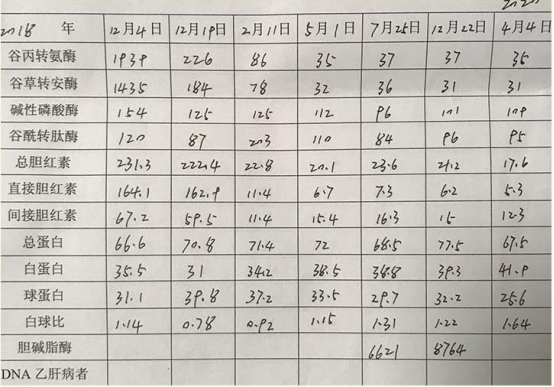 2018年 12月4日 12月19日 2月11日 5月1日 7月25日 12月22日 4月4日
谷丙转氨酶 1939 226 86 35 37 37 35
谷草转安酶 1435 184 78 32 36 31 31
碱性磷酸酶 154 125 125 112 96 101 109
谷酰转肽酶 120 87 203 110 84 96 95
总胆红素 231.3 222.4 22.8 20.1 23.6 21.2 17.6
直接胆红素 164.1 162.9 11.4 6.7 7.3 6.2 5.3
间接胆红素 67.2 59.5 11.4 15.4 16.3 15 12.3
总蛋白 66.6 70.8 71.4 72 68.5 77.5 67.5
白蛋白 35.5 31 34.2 38.5 38.8 39.3 41.9
球蛋白 31.1 39.8 37.2 33.5 29.7 32.2 25.6
白球比 1.14 0.78 0.92 1.15 1.31 1.22 1.64
胆碱脂酶 6621 8764
DNA 乙肝病者